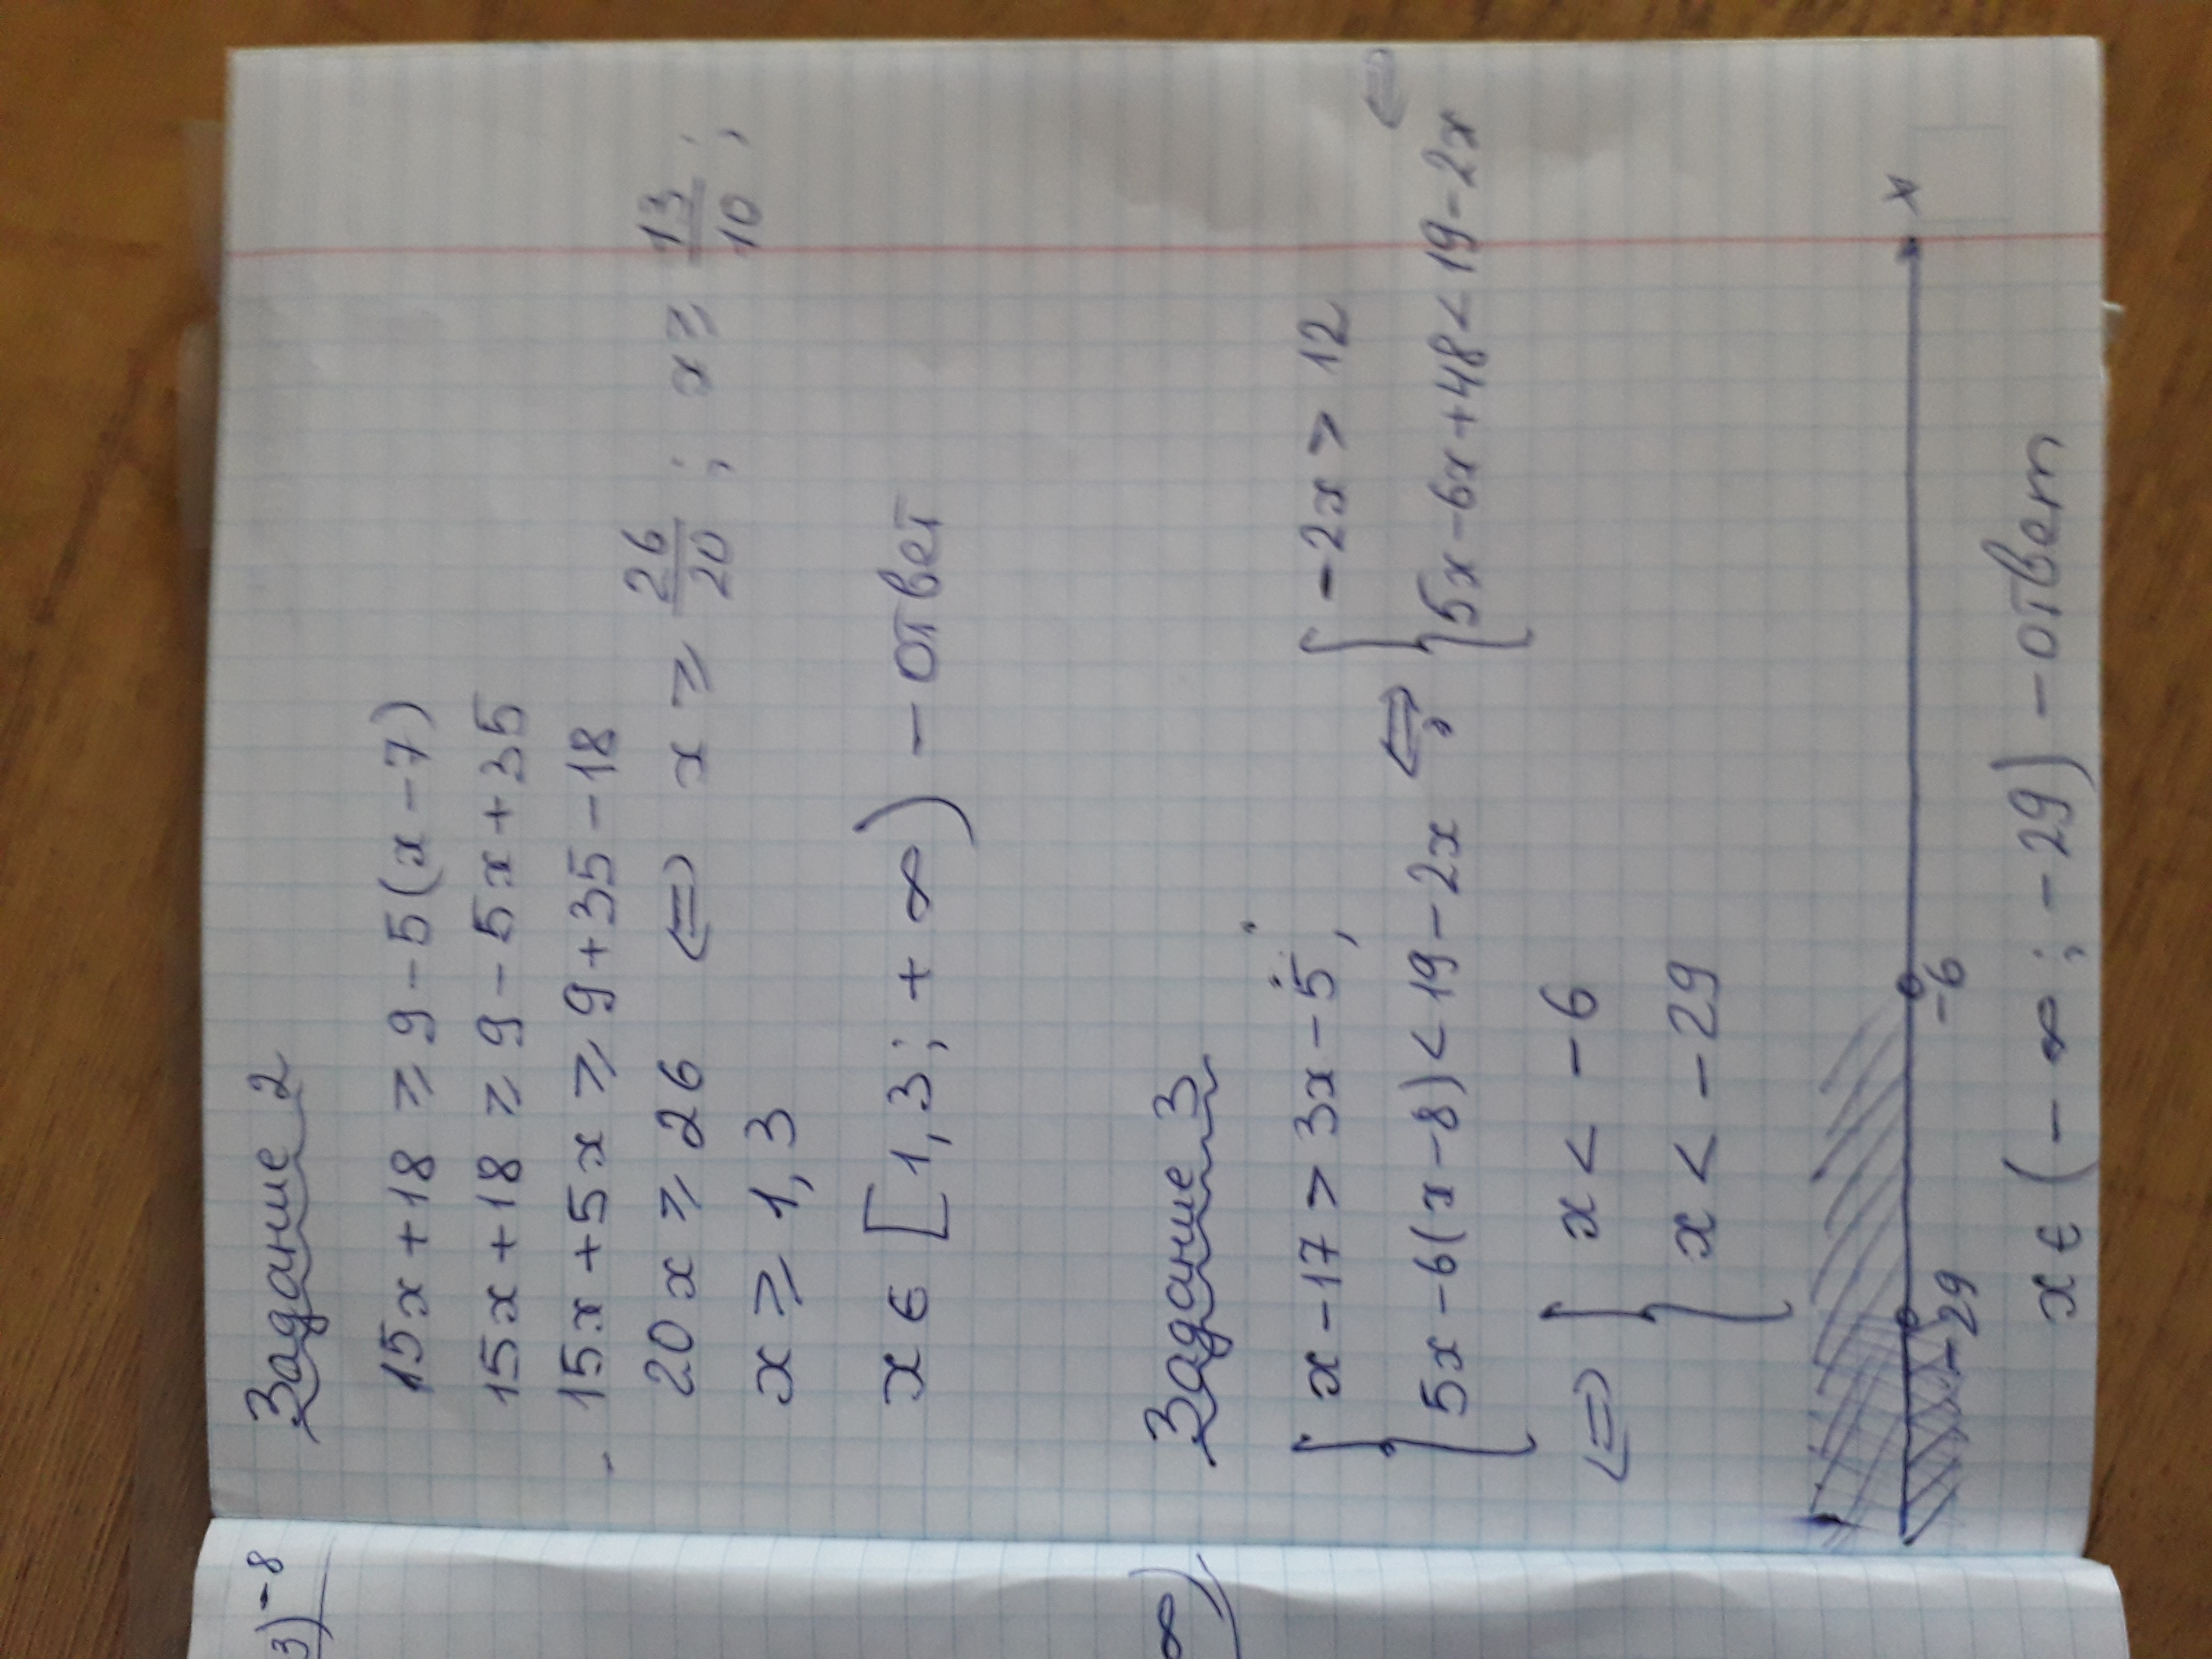 Задание 2
15x + 18 ⩾ 9 - 5(x - 7)
15x + 18 ⩾ 9 - 5x + 35
15x + 5x ⩾ 9 + 35 - 18
20x ⩾ 26 ⇔ x ⩾ 26/20 ; x ⩾ 13/10 ;
x ⩾ 1,3
x ϵ [1,3; +∞) - ответ
Задание 3
{ x - 17 > 3x - 5, { -2x > 12
{ 5x - 6(x - 8) < 19 - 2x ⇔ { 5x - 6x + 48 < 19 - 2x ⇔
⇔ { x < -6
{ x < -29
-29 -6 x
x ϵ (-∞; -29) - ответ
3) -8
∞)